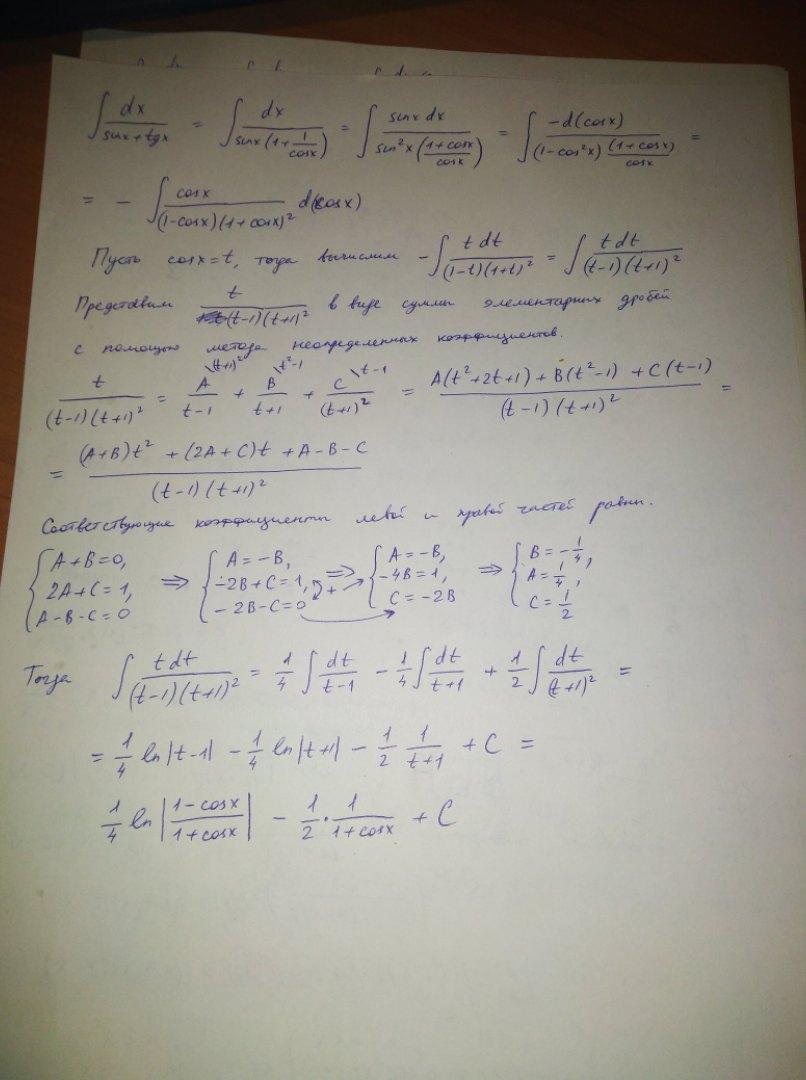 ∫ dx/(sinx+tgx) = ∫ dx/(sinx(1+1/cosx)) = ∫ sinx dx/(sin²x((1+cosx)/cosx)) = ∫ -d(cosx)/((1-cos²x)(1+cosx)/cosx) =
= - ∫ cosx/((1-cosx)(1+cosx)²) d(cosx)
Пусть cosx=t, тогда вычислим -∫ t dt/((1-t)(1+t)²) = ∫ t dt/((t-1)(t+1)²)
Представим t/((t-1)(t+1)²) в виде суммы элементарных дробей
с помощью метода неопределенных коэффициентов.
t/((t-1)(t+1)²) = A/(t-1) \(t+1)² + B/(t+1) \t²-1 + C/(t+1)² \t-1 = (A(t²+2t+1)+B(t²-1)+C(t-1))/((t-1)(t+1)²) =
= ((A+B)t² + (2A+C)t + A-B-C)/((t-1)(t+1)²)
Соответствующие коэффициенты левой и правой частей равны.
{ A+B=0, 2A+C=1, A-B-C=0 ⇒ { A=-B, -2B+C=1, -2B-C=0 + ⇒ { A=-B, -4B=1, C=-2B ⇒ { B=-1/4, A=1/4, C=1/2
Тогда ∫ t dt/((t-1)(t+1)²) = 1/4 ∫ dt/(t-1) - 1/4 ∫ dt/(t+1) + 1/2 ∫ dt/(t+1)² =
= 1/4 ln|t-1| - 1/4 ln|t+1| - 1/2 1/(t+1) + C =
1/4 ln|(1-cosx)/(1+cosx)| - 1/2 · 1/(1+cosx) + C